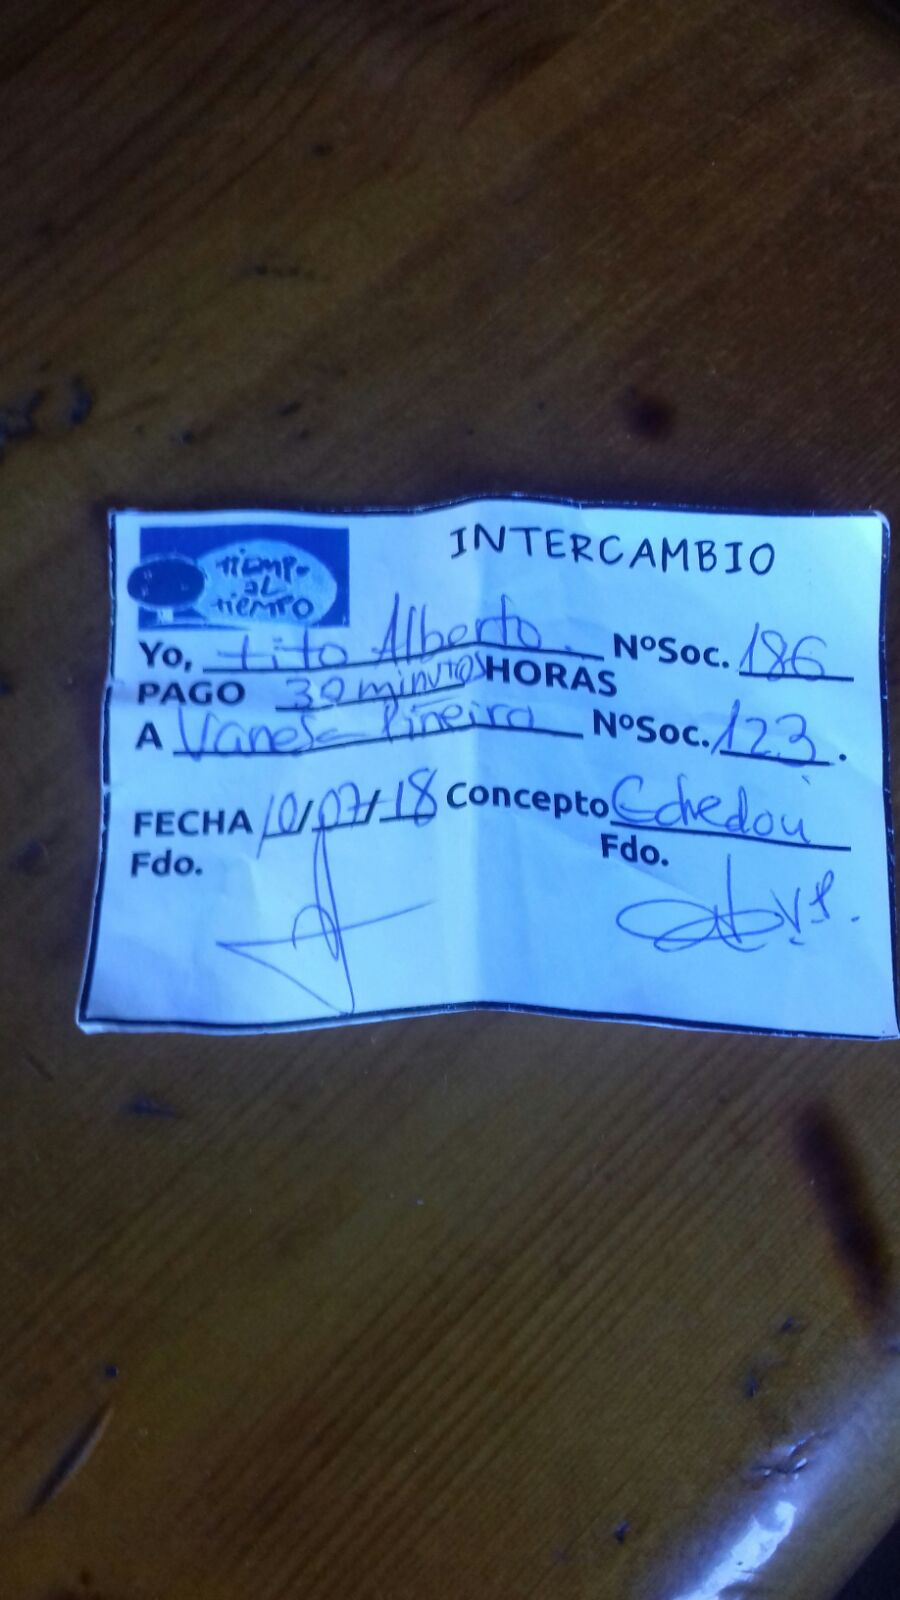 tiempo
al
tiempo
INTERCAMBIO
Yo, tito Alberto. NºSoc. 186
PAGO 30 minutos HORAS
A Vanesa Piñeiro NºSoc. 123.
FECHA 10/07/18 Concepto
Fdo. Fdo.
V.P.